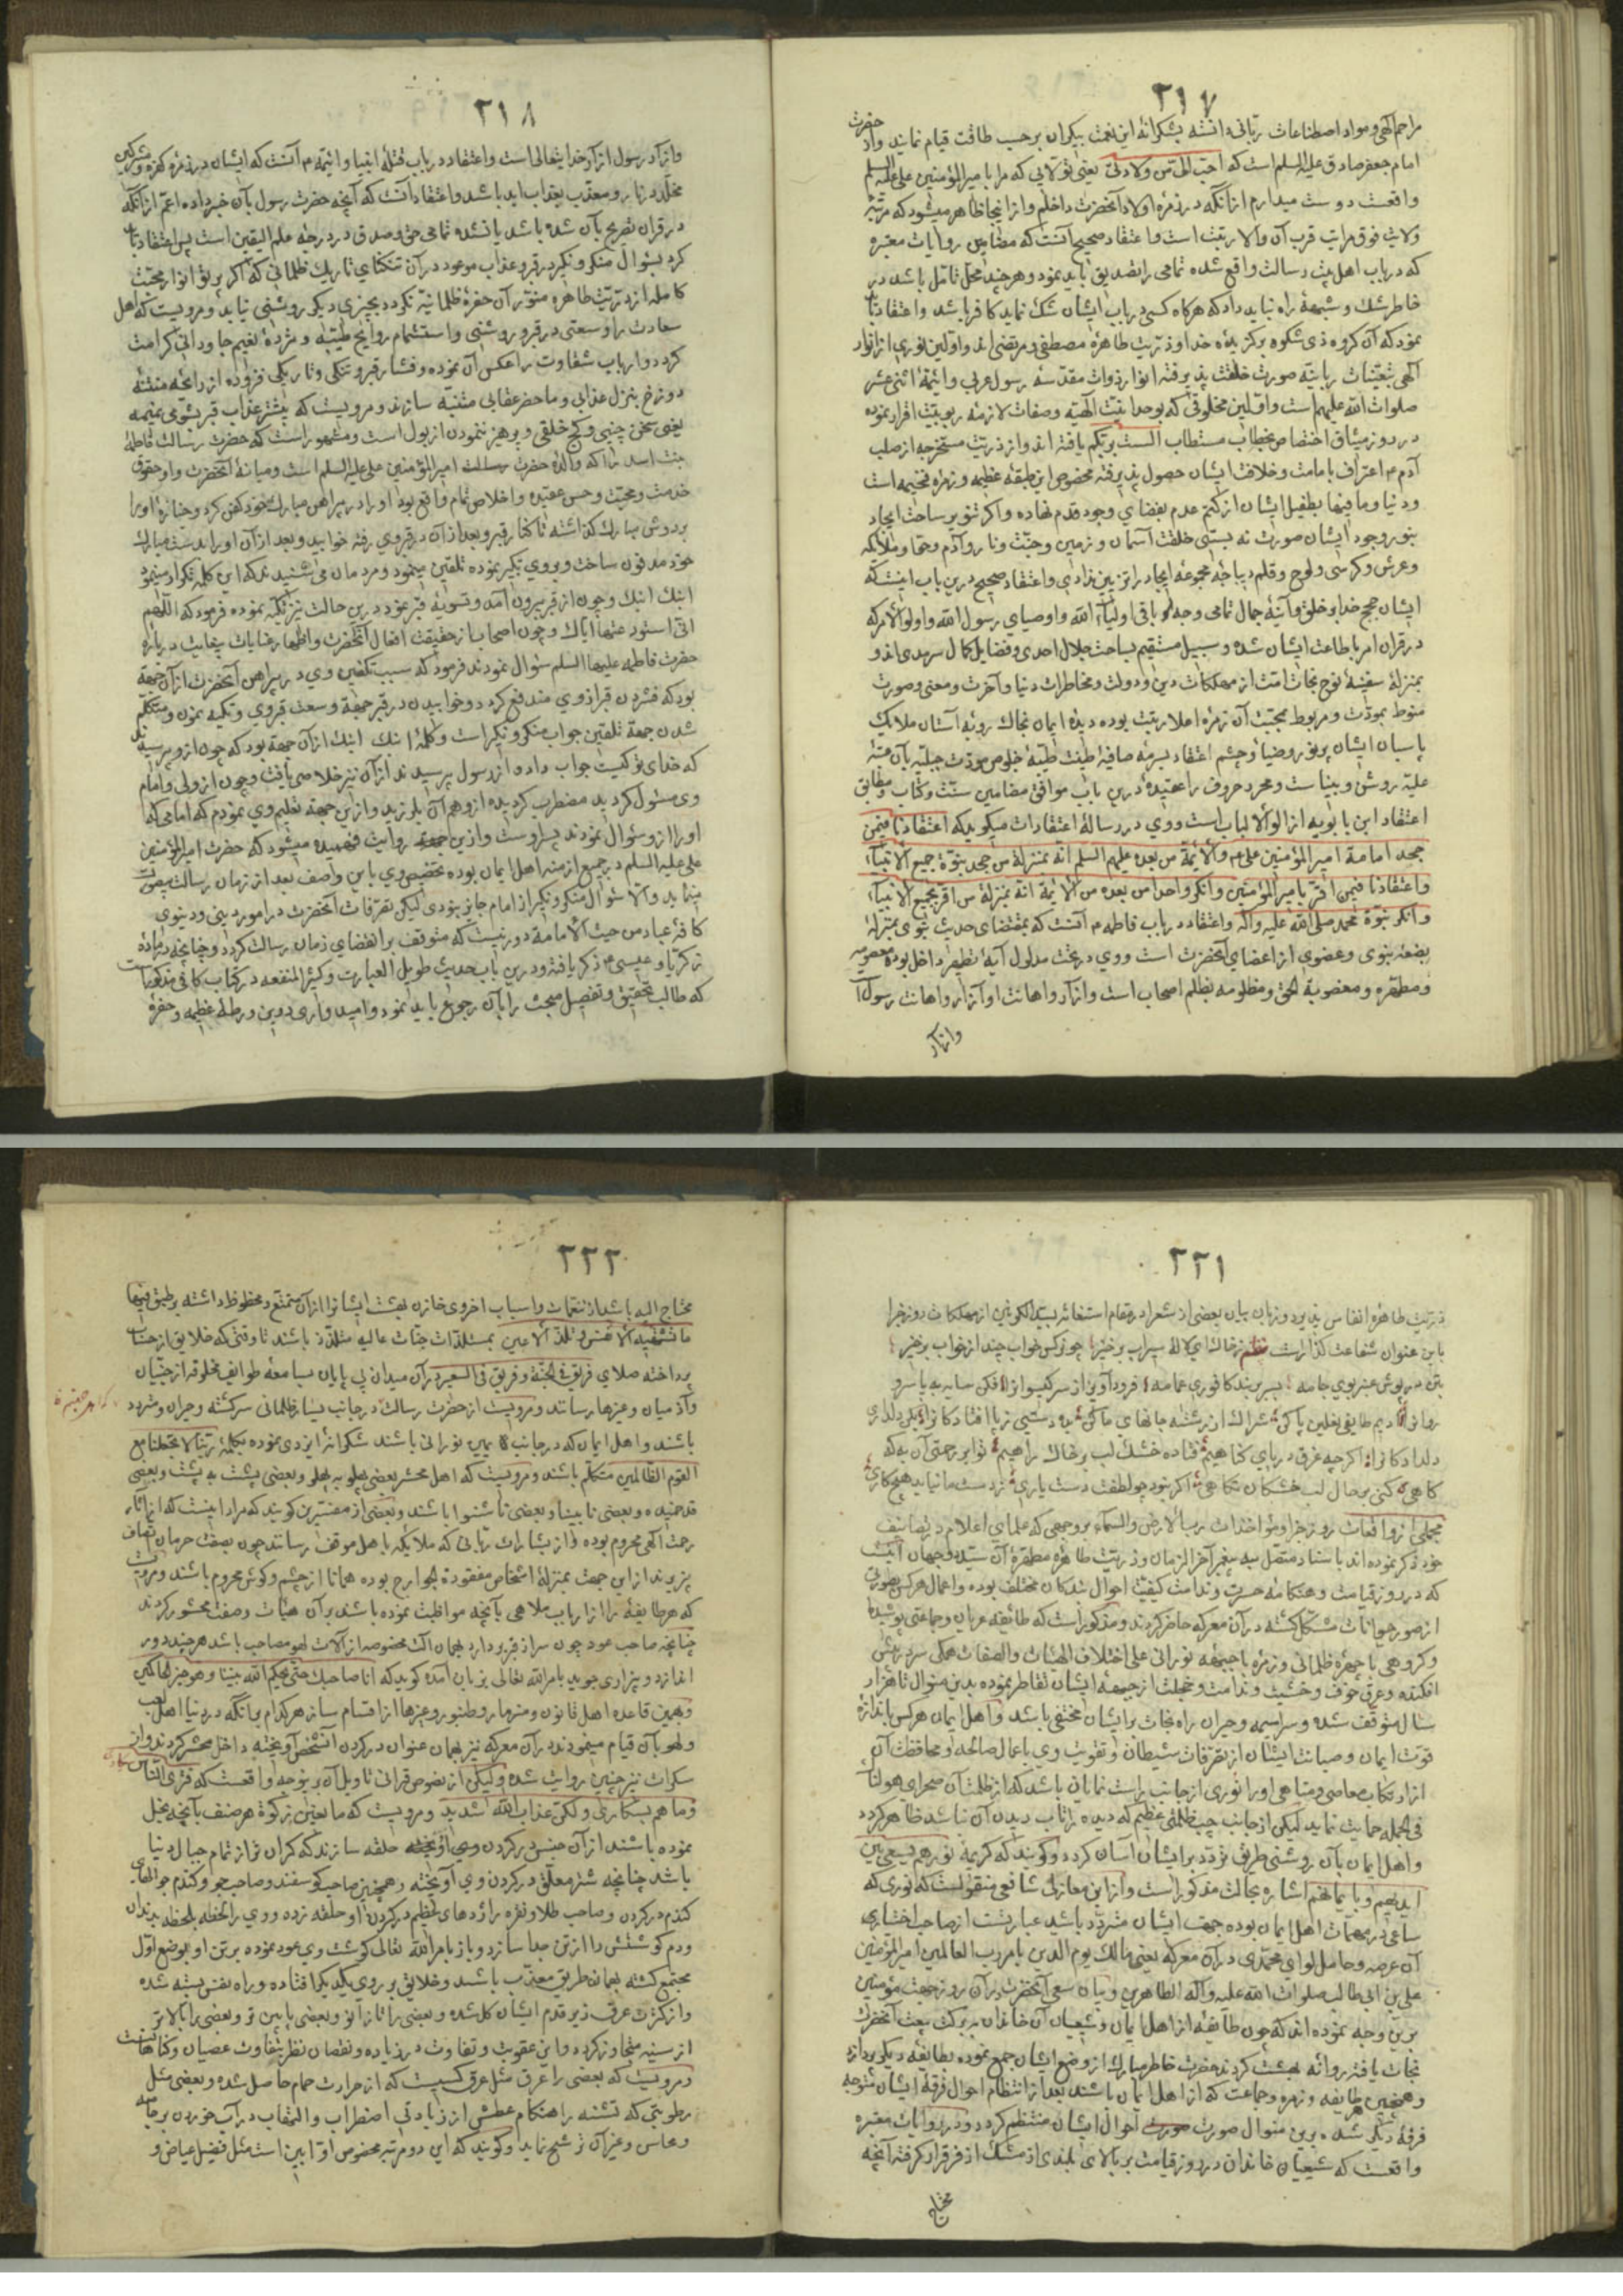 ۲۱۷
مراحم الهی و مواد اصطناعات ربانی دانسته بشکرانهٔ این نعمت بیکران بر حسب طاقت قیام نمایند و از حضرت
امام جعفر صادق علیه السلم است که احب الی من ولادتی یعنی تولایی که مرا بامیر المؤمنین علی علیه السلم
واقعست دوست میدارم از آنکه در زمرهٔ اولاد آنحضرت داخلم و از اینجا ظاهر میشود که مرتبهٔ
ولایت فوق مراتب قرب آن والا رتبت است و اعتقاد صحیح آنست که مضامین روایات معتبره
که در باب اهل بیت رسالت واقع شده تمامی را تصدیق باید نمود و هر چند محل تامل باشد در
خاطر شک و شبهه را راه نباید داد که هرگاه کسی در باب ایشان شک نماید کافر باشد و اعتقاد باید
نمود که آن کروه ذی شکوه برکزیدهٔ خدا و ذریت طاهرهٔ مصطفی و مرتضی اند و اولین نوری از انوار
الهی بتعینات ربانیه صورت خلقت پذیرفته انوار ذوات مقدسه رسول عربی و ائمهٔ اثنی عشر
صلوات الله علیهم است و اولین مخلوقی که بوحدانیت الهیه و صفات لازمه ربوبیت اقرار نموده
در روز میثاق اختصاص بخطاب مستطاب الست بربکم یافته اند و از ذریت مستخرجه از صلب
آدم اعتراف بامامت و خلافت ایشان حصول پذیرفته مخصوص این طبقهٔ عظیمه و زمرهٔ فخیمه است
و دنیا و ما فیها بطفیل ایشان از کتم عدم بفضای وجود قدم نهاده و اگر پرتو بر ساحت ایجاد
بنور وجود ایشان صورت نه بستی خلقت آسمان و زمین و جنت و نار و آدم و حوا و ملائکه
و عرش و کرسی و لوح و قلم دیباجهٔ مجموعهٔ ایجاد را تزیین ندادی و اعتقاد صحیح درین باب اینست که
ایشان حجج خدا بر خلق و آینهٔ جمال نمای وجه باقی اولیاء الله و اوصیای رسول الله و اولو الامر که
در قران امر باطاعت ایشان شده و سبیل مستقیم بساحت جلال احدی و فضایل کمال سرمدی اند و
بمنزلهٔ سفینهٔ نوح نجات امت از مهلکات دین و دولت و مخاطرات دنیا و آخرت و معنی و صورت
منوط بمودت و مربوط بمحبت آن زمرهٔ اعلا رتبت بوده دیدهٔ ایمان بخاک روبهٔ آستان ملایک
پاسبان ایشان پرنور و ضیا و چشم اعتقاد بسرمهٔ صافیهٔ طینت طیبهٔ خلوص مودت جبلیه بآن عتبهٔ
علیه روشن و بیناست و محرر حروف را عقیده درین باب موافق مضامین سنت و کتاب و مطابق
اعتقاد ابن بابویه از اولو الالباب است و وی در رسالهٔ اعتقادات میکوید که اعتقادنا فیمن
جحد امامة امیر المؤمنین علی و الائمة من بعده علیهم السلم انه بمنزلة من جحد بنوة جمیع الانبیاء
و اعتقادنا فیمن اقر بامیر المؤمنین و انکر واحدا من بعده من الائمة انه بمنزلة من اقر بجمیع الانبیاء
و انکر بنوة محمد صلی الله علیه و آله و اعتقاد در باب فاطمه آنست که بمقتضای حدیث نبوی بمنزلهٔ
بضعهٔ نبوی و عضوی از اعضای آنحضرت است و وی در تحت مدلول آیهٔ تطهیر داخل بوده معصومه
و مطهره و مغصوبة الحق و مظلومه بظلم اصحاب است و آزار و اهانت او آزار و اهانت رسول
و آزار
۲۱۸
و آزار رسول از آزار خدایتعالی است و اعتقاد در باب قتلهٔ انبیا و ائمه آنست که ایشان در زمرهٔ کفره و مشرکین
مخلد در نار و معذب بعذاب ابد باشند و اعتقاد آنست که آنچه حضرت رسول بآن خبر داده اعم از آنکه
در قران تصریح بآن شده باشد یا نشده تمامی حق و صدق در درجهٔ علم الیقین است پس اعتقاد باید
کرد بسؤال منکر و نکیر در قبر و عذاب موعود در آن تنکنای تاریک ظلمانی که اگر پرتو انوار محبت
کامله از ذریت طاهره منور آن حفرهٔ ظلمانیه نکردد بچیزی دیکر روشنی نیابد و مرویست که اهل
سعادت را وسعتی در قبر و روشنی و استشمام روایح طیبه و مژدهٔ نعیم جاودانی کرامت
کردد و ارباب شقاوت را عکس آن نموده و فشار قبر و تنکی و تاریکی فزوده از رائحهٔ منتنهٔ
دوزخ بنزل عذابی و ما حضر عقابی متنبه سازند و مرویست که بیشتر عذاب قبر بشومی نمیمه
یعنی سخن چینی و کج خلقی و پرهیز ننمودن از بول است و مشهور است که حضرت رسالت فاطمهٔ
بنت اسد را که والدهٔ حضرت امیر المؤمنین علی علیه السلم است و میانهٔ آنحضرت و او حقوق
خدمت و محبت و حسن عقیده و اخلاص تمام واقع بود او را در پیراهن مبارک خود کفن کرد و جنازهٔ او را
بر دوش مبارک کذاشته تا کنار قبر و بعد از آن در قبر وی رفته خوابید و بعد از آن او را بدست مبارک
خود مدفون ساخت و بر وی تکبیر نموده تلقین مینمود و مردمان می شنیدند که این کلمه تکرار مینمود
ابنک ابنک و چون از قبر بیرون آمد و تسویهٔ قبر نمود درین حالت نیز تکیه نموده فرمود که اللهم
انی استودعتها ایاک و چون اصحاب از حقیقت افعال آنحضرت و اظهار عنایات بیغایت درباره
حضرت فاطمه علیها السلم سؤال نمودند فرمود که سبب تکفین وی در پیراهن آنحضرت از آن جهة
بود که فشردن قبر از وی مندفع کردد و خوابیدن در قبر جهة وسعت قبر وی و تکیه نمودن و متکلم
شدن جهة تلقین جواب منکر و نکیر است و کلمهٔ ابنک ابنک از آن جهة بود که چون از و پرسیدند
که خدای تو کیست جواب داد و از رسول پرسیدند از آن نیز خلاصی یافت و چون از ولی و امام
وی مسئول کردید مضطرب کردیده از وهم آن بلرزید و ازین جهة تعلیم وی نمودم که امامی که
او را از و سئوال نمودند پسر اوست و ازین روایت فهمیده میشود که حضرت امیر المؤمنین
علی علیه السلم در جمیع ازمنه اهل ایمان بوده تخصیص وی باین واصف بعد از زمان رسالت
بنماید و الا سئوال منکر و نکیر از امام جایز نبودی لیکن تصرفات آنحضرت در امور دینی و دنیوی
کافهٔ عباد من حیث الامامة دور نیست که متوقف بر انقضای زمان رسالت کردد و چنانچه دربارهٔ
زکریا و عیسی ذکر یافته و درین باب حدیث طویل العبارت و کثیر المنفعه در کتاب کافی مذکور است
که طالب تحقیق و تفصیل مبحث را بآن رجوع باید نمود و امیدواری درین ورطهٔ عظیمه و حفرهٔ
۲۲۱
ذریت طاهره انفاس پذیرد و زبان بیان بعضی از شعرا در مقام استغاثه بسید الکونین از مهلکات روز جزا
باین عنوان شفاعت کذار است نظم ز خاک ای لالهٔ سیراب برخیز چو نرکس خواب چند از خواب برخیز
بتن در پوش عنبر بوی جامه بسر بربند کافوری عمامه فرود آویز از سر کیسوانرا فکن سایه بپا سرو
روانرا ادیم طایفی نعلین پا کن شراک از رشتهٔ جانهای ما کن بده دستی ز پا افتادکانرا بکن دلداری
دلدادکانرا اکرچه غرق دریای کناهیم فتاده خشک لب بر خاک راهیم تو ابر رحمتی آن به که
کاهی کنی بر حال لب خشکان نکاهی اکر نبود چو لطفت دست یاری ز دست ما نیاید هیچ کاری
مجملی از واقعات روز جزا و مؤاخذات رب الارض و السماء بر وجهی که علمای اعلام در تصانیف
خود ذکر نموده اند باسناد متصل به پیغمبر آخر الزمان و ذریت طاهرهٔ مطهرهٔ آن سید دو جهان آنست
که در روز قیامت و هنکامهٔ حسرت و ندامت کیفیت احوال بندکان مختلف بوده و اعمال هر کس بصورتی
از صور حیوانات متشکل کشته در آن معرکه حاضر کردند و مذکور است که طائفهٔ عریان و جماعتی پوشیده
و کروهی با چهرهٔ ظلمانی و زمره با جبههٔ نورانی علی اختلاف الهیئات و الصفات همکی سر در پیش
افکنده و عرق خوف و خشیت و ندامت و خجلت از جبههٔ ایشان تقاطر نموده بدین منوال تا هزار
سال متوقف شده و سراسیمه و حیران راه نجات بر ایشان مختفی باشد و اهل ایمان هر کس باندازهٔ
قوت ایمان و صیانت ایشان از تصرفات شیطان و تقویت وی باعمال صالحه و محافظت آن
از ارتکاب معاصی و مناهی او را نوری از جانب راست نمایان باشد که از ظلمت آن صحرای هولناک
فی الجمله حمایت نماید لیکن از جانب چپ ظلمتی عظیم که دیده را تاب دیدن آن نباشد ظاهر کردد
و اهل ایمان بآن روشنی طریق تردد بر ایشان آسان کردد و کویند که کریمهٔ نورهم یسعی بین
ایدیهم و بایمانهم اشاره بحالت مذکور است و از ابن مغازلی شافعی منقولست که نوری که
ساعی در مهمات اهل ایمان بوده جهت ایشان متردد باشد عبارتست از صاحب اختیاری
آن عرصه و حامل لوای محمدی در آن معرکه یعنی مالک یوم الدین بامر رب العالمین امیر المؤمنین
علی بن ابی طالب صلوات الله علیه و آله الطاهرین و بیان سعی آنحضرت در آن روز جهت مؤمنین
برین وجه نموده اند که چون طائفه از اهل ایمان و شیعیان آن خاندان ببرکت آنحضرت
نجات یافته روانهٔ بهشت کردند حضرت خاطر مبارک از وضع ایشان جمع نموده بطایفهٔ دیکر پردازد
و همچنین طایفه و زمره و جماعت که از اهل ایمان باشند بعد از انتظام احوال فرقهٔ ایشان متوجه
فرقهٔ دیکر شده برین منوال صورت احوال ایشان منتظم کردد و در روایات معتبره
واقعست که شیعیان خاندان در روز قیامت بر بالای بلندی از مشک اذفر قرار کرفته آنچه
محتاج
۲۲۲
محتاج الیه باشد از نعمات و اسباب اخروی خازن بهشت ایشانرا از آن متمتع و محظوظ داشته بر طبق فیها
ما تشتهیه الانفس و تلذ الاعین بمستلذات جنات عالیه متلذذ باشند تا وقتی که خلایق از حساب
پرداخته صلای فریق فی الجنة و فریق فی السعیر در آن میدان بی پایان بسامعهٔ طوایف مخلوقه از جنیان
و آدمیان و غیرها رسانند و مرویست از حضرت رسالت در جانب یسار ظلمانی سرکشته و حیران و متردد
باشند و اهل ایمان که در جانب یمین نورانی باشند شکرانهٔ ایزدی نموده بکلمهٔ ربنا لا تجعلنا مع
القوم الظالمین متکلم باشند و مرویست که اهل محشر بعضی پهلو به پهلو و بعضی پشت به پشت و بعضی
قد خمیده و بعضی نابینا و بعضی ناشنوا باشند و بعضی از مفسرین کویند که مراد اینست که از آثار
رحمت الهی محروم بوده و از بشارات ربانی که ملایکه باهل موقف رسانند چون بصفت حرمان اتصاف
پزیرند از این جهت بمنزلهٔ اشخاص مفقودة الجوارح بوده همانا از چشم و کوش محروم باشند و مرویست
که هر طایفه را از ارباب ملاهی بآنچه مواظبت نموده باشند بر آن هیأت و صفت محشور کردند
چنانچه صاحب عود چون سر از قبر بردارد بهمان آلت مخصوصه از آلات لهو مصاحب باشد هر چند دور
اندازد و بیزاری جوید بامر الله تعالی بزبان آمده کوید که انا صاحبک حتی یحکم الله بیننا و هو خیر الحاکمین
و بهمین قاعده اهل قانون و مزمار و طنبور و غیرها از اقسام ساز هر کدام بر آنکه در دنیا اهل لعب
و لهو بآن قیام مینمودند در آن معرکه نیز بهمان عنوان در کردن آنشخص آویخته داخل محشر کردند و از
سکرات نیز چنین روایت شده و لیکن از نصوص قرانی تاویل آن بر نوجه واقعست که و تری الناس سکاری
و ما هم بسکاری و لکن عذاب الله شدید و مرویست که مانعین زکوة هر صنف بآنچه بخل
نموده باشند از آن جنس در کردن وی آویخته حلقه سازند که کران تر از تمام جبال دنیا
باشد چنانچه شتر معلق در کردن وی آویخته و همچنین صاحب کوسفند و صاحب جو و کندم جوالهای
کندم در کردن و صاحب طلا و نقره را اژدهای عظیم در کردن او حلقه زده و وی را لحظه بلحظه بدندان
و دم کوشتش را از تن جدا سازد و باز بامر الله تعالی کوشت وی عود نموده بر تن او بوضع اول
مجتمع کشته بهمان طریق معذب باشد و خلایق بر روی یکدیکر افتاده و راه نفس بسته شده
و از کثرت عرق زیر قدم ایشان کل شده و بعضی را تا زانو و بعضی پایین تر و بعضی را بالاتر
از سینه متجاوز کردد و این عقوبت و تفاوت در زیاده و نقصان نظر بتفاوت عصیان و کناهانست
و مرویست که بعضی را عرق مثل عرق کسیست که از حرارت حمام حاصل شده و بعضی مثل
رطوبتی که تشنه را هنکام عطش از زیادتی اضطراب و التهاب در آب خوردن بر جامه
و محاسن و غیر آن ترشح نماید و کویند که این دو مرتبه مخصوص اوابین است مثل فضیل عیاض و